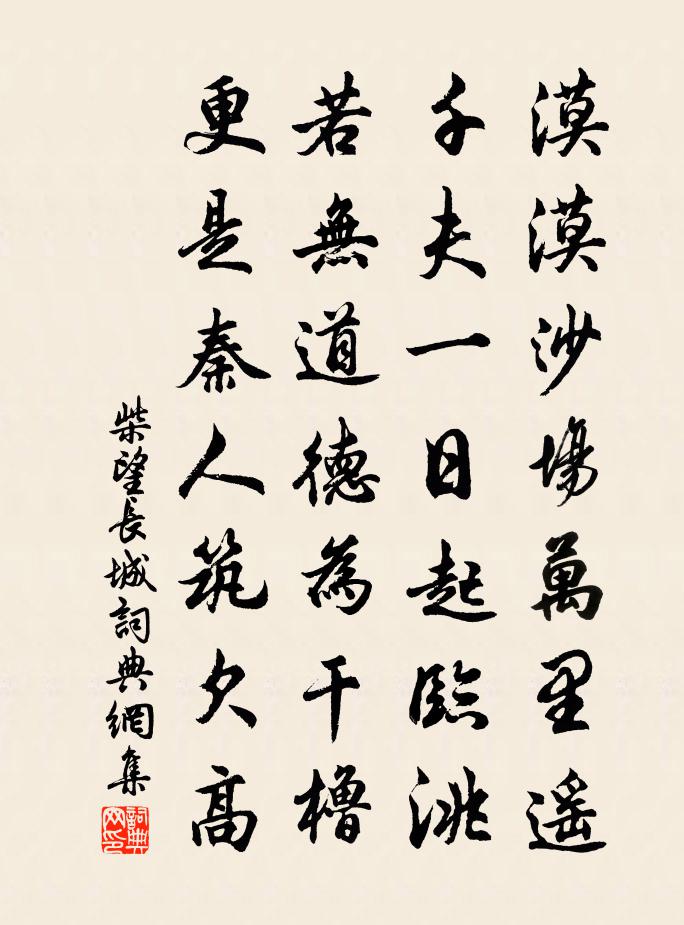 漠漠沙場萬里遥
千夫一日起臨洮
若無道德為干櫓
更是秦人筑欠高
柴望長城詞典網集
詞典网印